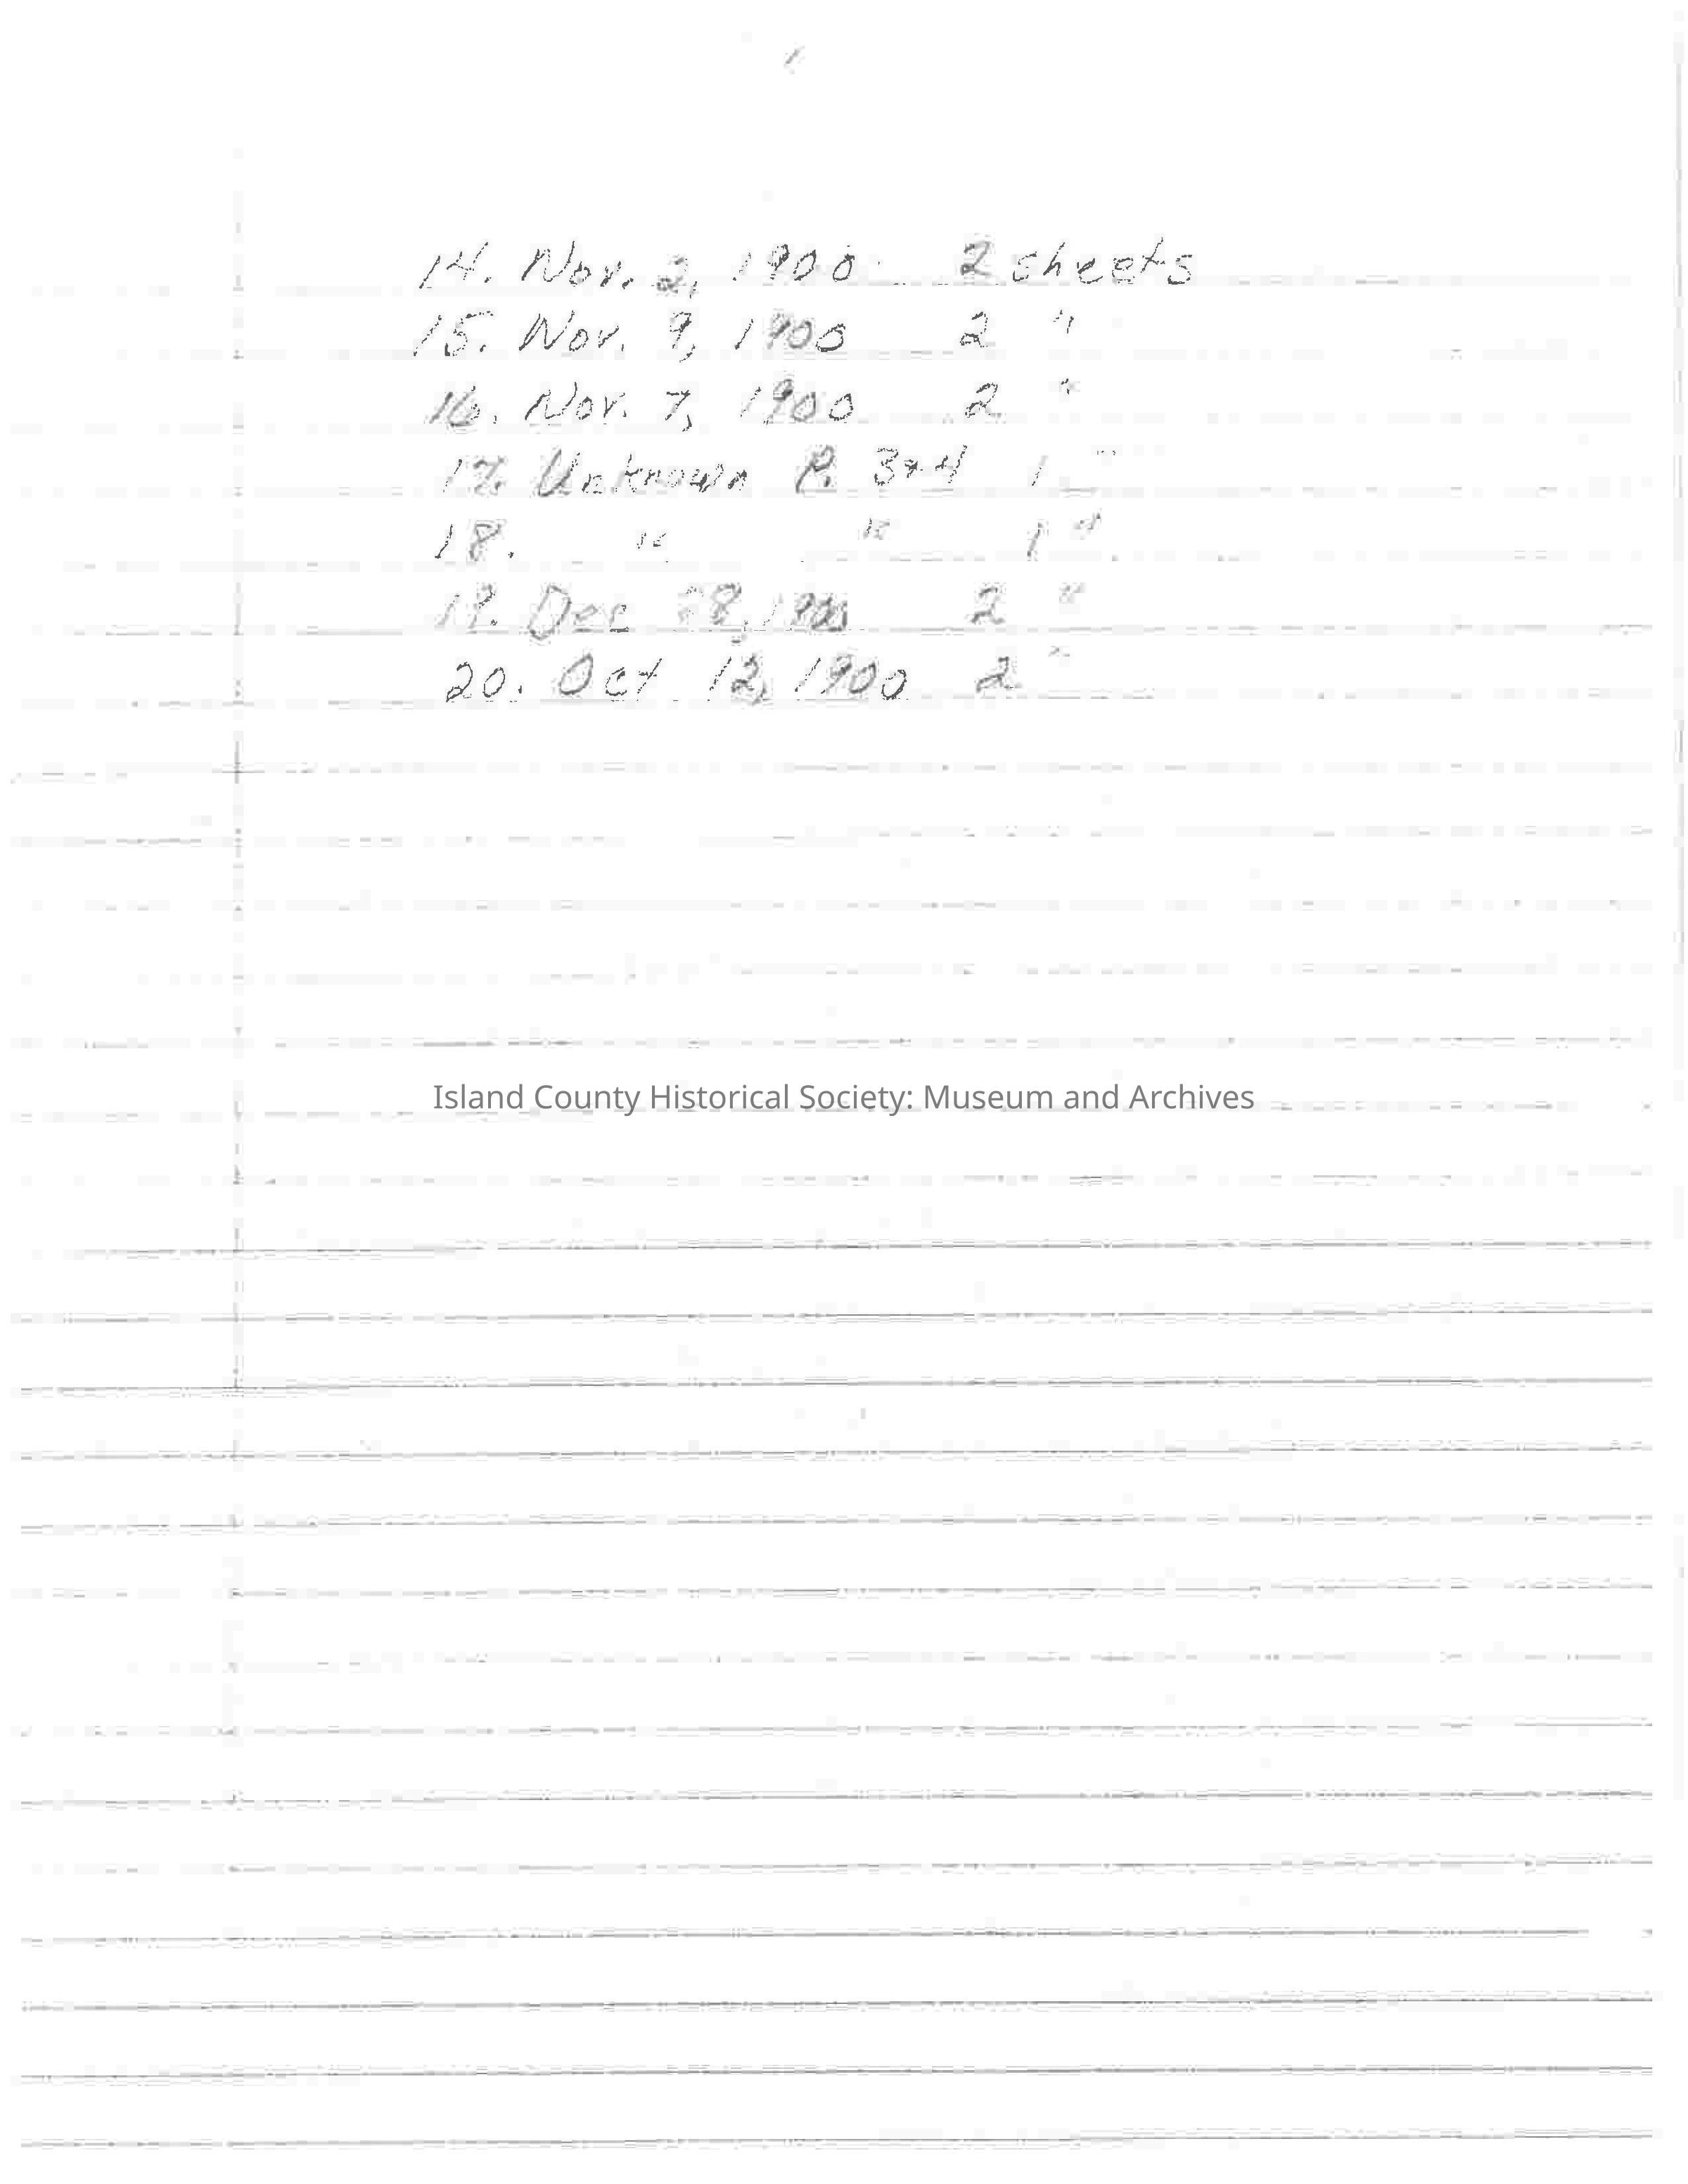 14. Nov. 2, 1900 2 sheets
15. Nov. 9, 1900 2 "
16. Nov. 7, 1900 2 "
17. Unknown P. 3+4 1 "
18. " " 1 "
19. Dec 28, 1900 2 "
20. Oct 12, 1900 2 "
Island County Historical Society: Museum and Archives